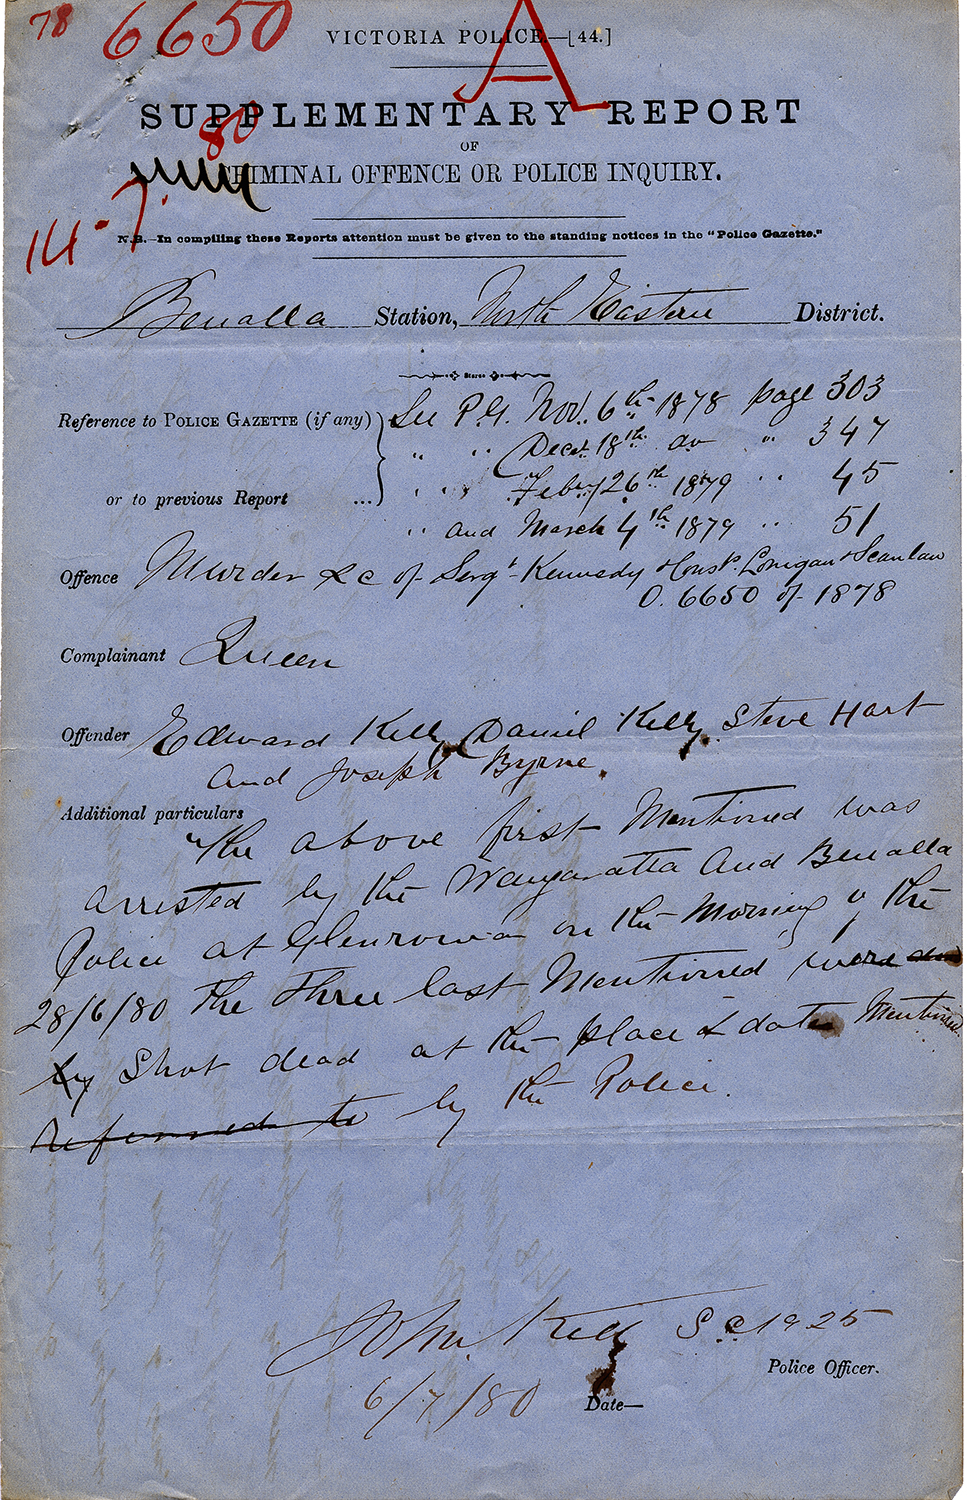 78 6650 A
VICTORIA POLICE.—[44.]
SUPPLEMENTARY REPORT
OF
80
CRIMINAL OFFENCE OR POLICE INQUIRY.
14-7.
N.B.—In compiling these Reports attention must be given to the standing notices in the "Police Gazette."
Benalla Station, North Eastern District.
Reference to POLICE GAZETTE (if any) See P.G. Nov. 6th 1878 page 303
" " Decr. 18th do " 347
or to previous Report ... " " Feby 26th 1879 " 45
" and March 4th 1879 " 51
Offence Murder &c of Sergt Kennedy & Consts. Lonigan & Scanlan
O. 6650 of 1878
Complainant Queen
Offender Edward Kelly, Daniel Kelly, Steve Hart
and Joseph Byrne.
Additional particulars
The above first Mentioned was
arrested by the Wangaratta And Benalla
Police at Glenrowan on the Morning of the
28/6/80 The three last Mentioned were
by Shot dead at the place & date Mentioned
referred to by the Police.
John Kelly S.C. 1925
Police Officer.
6/7/80 Date—